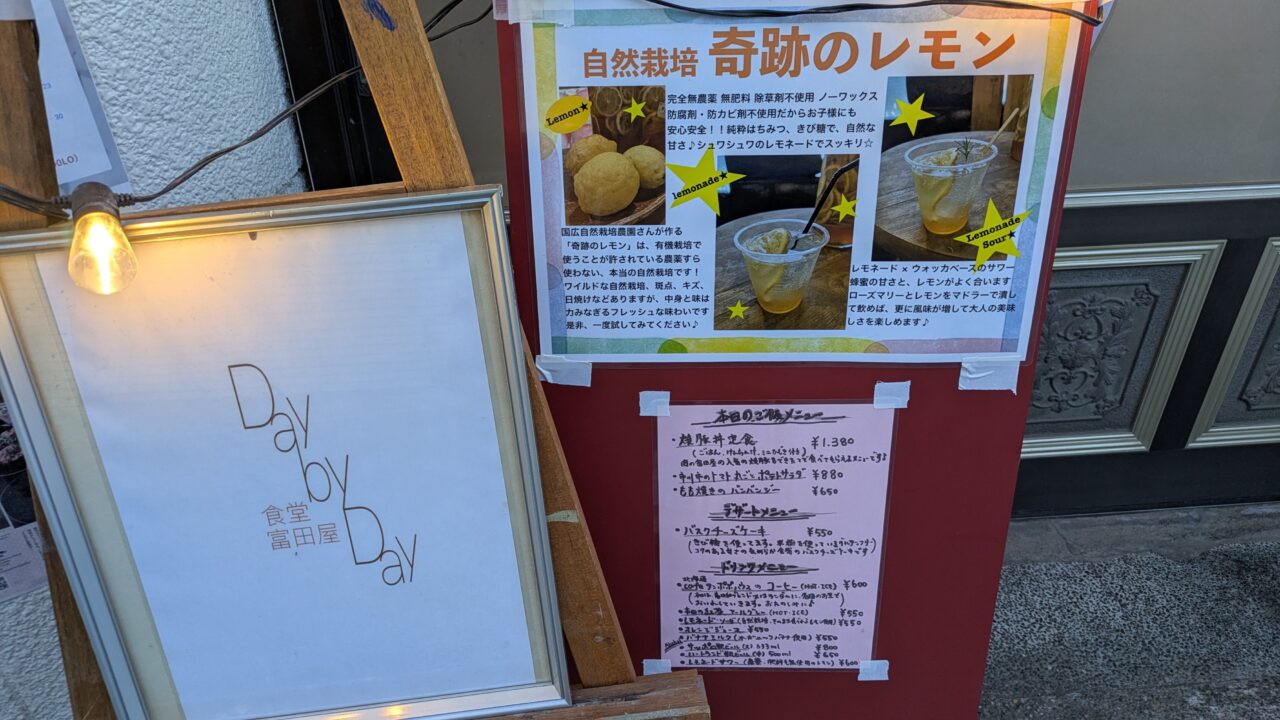 Day
by
Day
食堂
富田屋
自然栽培 奇跡のレモン
Lemon★
完全無農薬 無肥料 除草剤不使用 ノーワックス
防腐剤・防カビ剤不使用だからお子様にも
安心安全！！純粋はちみつ、きび糖で、自然な
甘さ♪シュワシュワのレモネードでスッキリ☆
lemonade★
国広自然栽培農園さんが作る
「奇跡のレモン」は、有機栽培で
使うことが許されている農薬すら
使わない、本当の自然栽培です！
ワイルドな自然栽培、斑点、キズ、
日焼けなどありますが、中身と味は
力みなぎるフレッシュな味わいです
是非、一度試してみてください♪
Lemonade
Sour★
レモネード × ウォッカベースのサワー
蜂蜜の甘さと、レモンがよく合います
ローズマリーとレモンをマドラーで潰し
て飲めば、更に風味が増して大人の美味
しさを楽しめます♪
本日のご飯メニュー
・焼豚丼定食 ¥1.380
・トマト丸ごとポテトサラダ ¥880
・もも焼きのバンバンジー ¥650
デザートメニュー
・バスクチーズケーキ ¥550
ドリンクメニュー
北海道
タンポポハウスのコーヒー (HOT・ICE) ¥600
アールグレー (HOT・ICE) ¥550
・レモネードソーダ ¥550
・オレンジジュース ¥550
・バナナミルク ¥550
633ml ¥800
500ml ¥650
・レモネードサワー ¥600